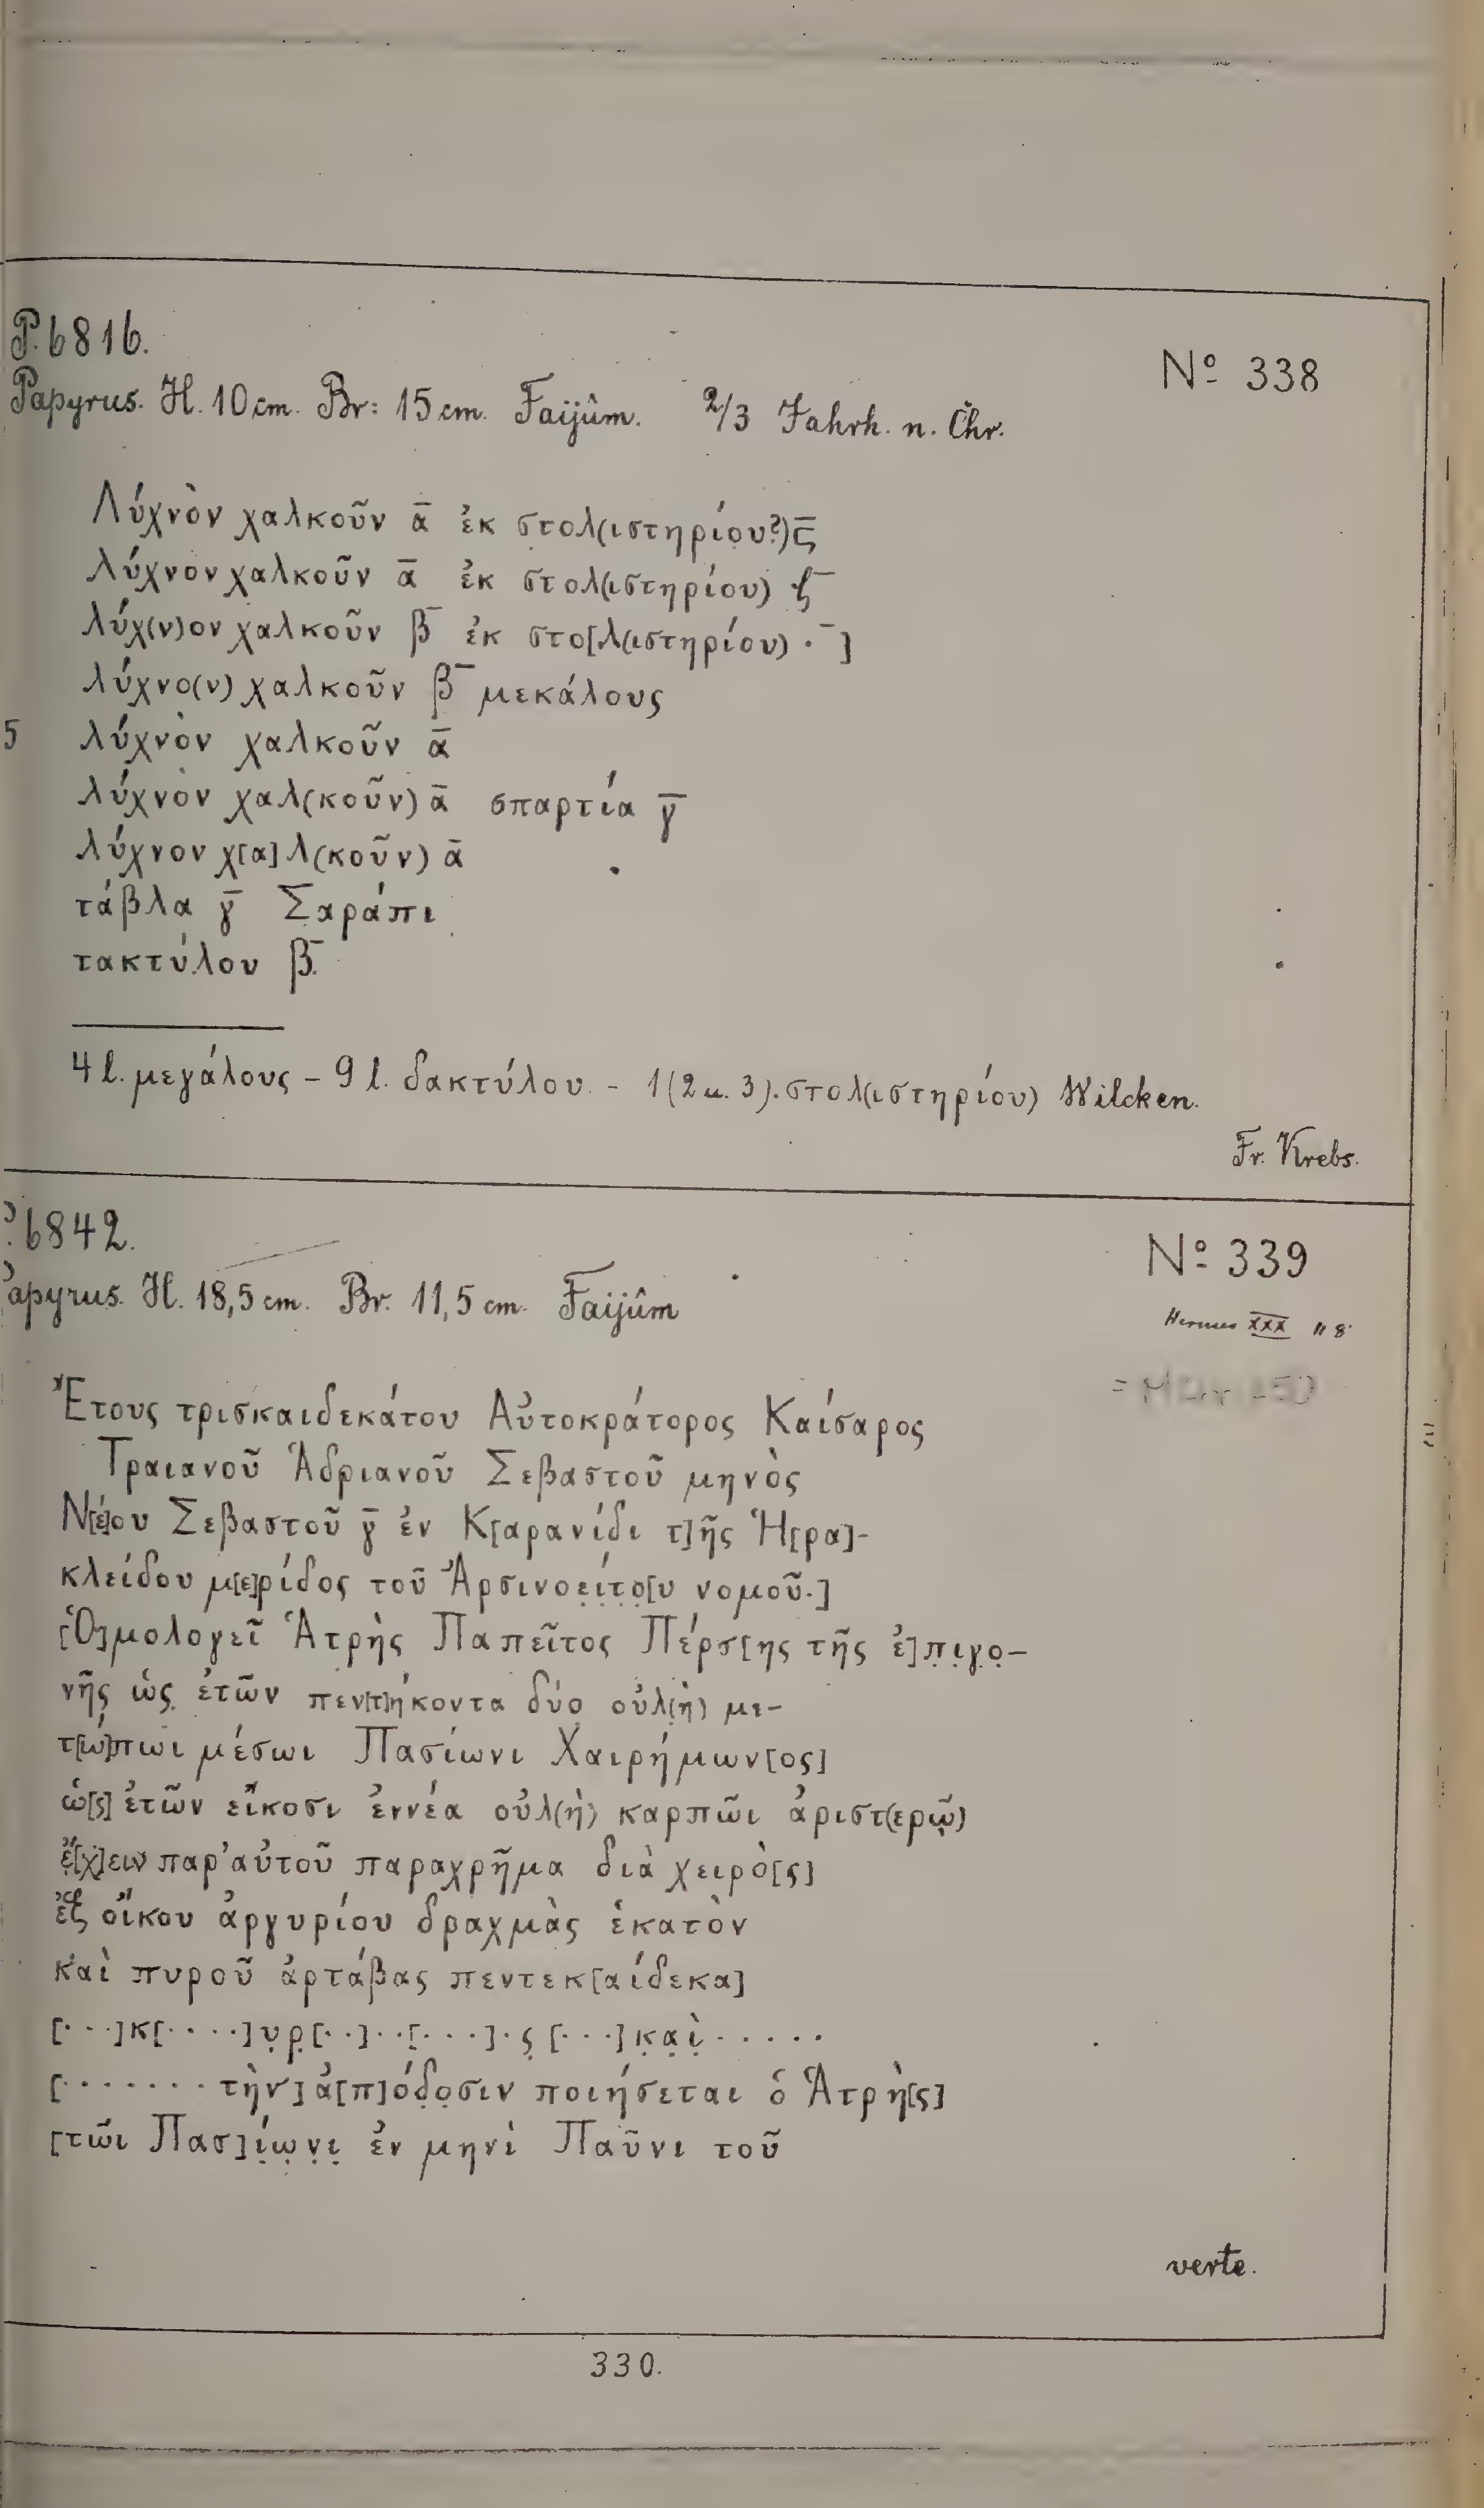 P. 6816.
Nº 338
Papyrus. H. 10 cm. Br: 15 cm. Faijûm. 2/3 Jahrh. n. Chr.
Λύχνὸν χαλκοῦν α̅ ἐκ στολ(ιστηρίου?) ς̅
λύχνον χαλκοῦν α̅ ἐκ στολ(ιστηρίου) ζ̅
λύχ(ν)ον χαλκοῦν β̅ ἐκ στο[λ(ιστηρίου) ·̅ ]
λύχνο(ν) χαλκοῦν β̅ μεκάλους
5 λύχνὸν χαλκοῦν α̅
λύχνὸν χαλ(κοῦν) α̅ σπαρτία γ̅
λύχνον χ[α]λ(κοῦν) α̅
τάβλα γ̅ Σαράπι
τακτύλου β̅.
4 l. μεγάλους – 9 l. δακτύλου. – 1 (2 u. 3). στολ(ιστηρίου) Wilcken.
Fr. Krebs.
6842.
Nº 339
apyrus. H. 18,5 cm. Br. 11,5 cm. Faijûm
Hermes XXX 118
Ἔτους τρισκαιδεκάτου Αὐτοκράτορος Καίσαρος
Τραιανοῦ Ἁδριανοῦ Σεβαστοῦ μηνὸς
Ν[έ]ου Σεβαστοῦ γ̅ ἐν Κ[αρανίδι τ]ῆς Ἡ[ρα]-
κλείδου μ[ε]ρίδος τοῦ Ἀρσινοε̣ί̣τ̣ο̣[υ νομοῦ.]
[Ὁ]μολογεῖ Ἁτρὴς Παπεῖτος Πέρσ[ης τῆς ἐ]π̣ι̣γ̣ο̣-
νῆς ὡς̣ ἐτῶν πεν[τ]ήκοντα δύο̣ οὐλ(ὴ) με-
τ[ώ]πωι μέσωι Πασίωνι Χαιρήμων[ος]
ὡ[ς] ἐτῶν εἴκοσι ἐννέα οὐλ(ὴ) καρπῶι ἀριστ(ερῷ)
ἔ̣[χ]ειν παρ’ αὐτοῦ παραχρῆμα διὰ χειρὸ[ς]
ἐξ οἴκου ἀργυρίου δραχμὰς ἑκατὸν
καὶ πυροῦ ἀρτάβας πεντεκ[αίδεκα]
[· · ·]κ[· · · ·]υ̣ρ̣[· ·]· ·[· · ·]· ς̣ [· · ·] κ̣α̣ὶ̣ · · · · ·
[· · · · · · · τὴν] ἀ[π]όδ̣ο̣σιν ποιήσεται ὁ Ἁτρὴ[ς]
[τῶι Πασ]ί̣ω̣ν̣ι̣ ἐν μηνὶ Παῦνι τοῦ
verte.
330.